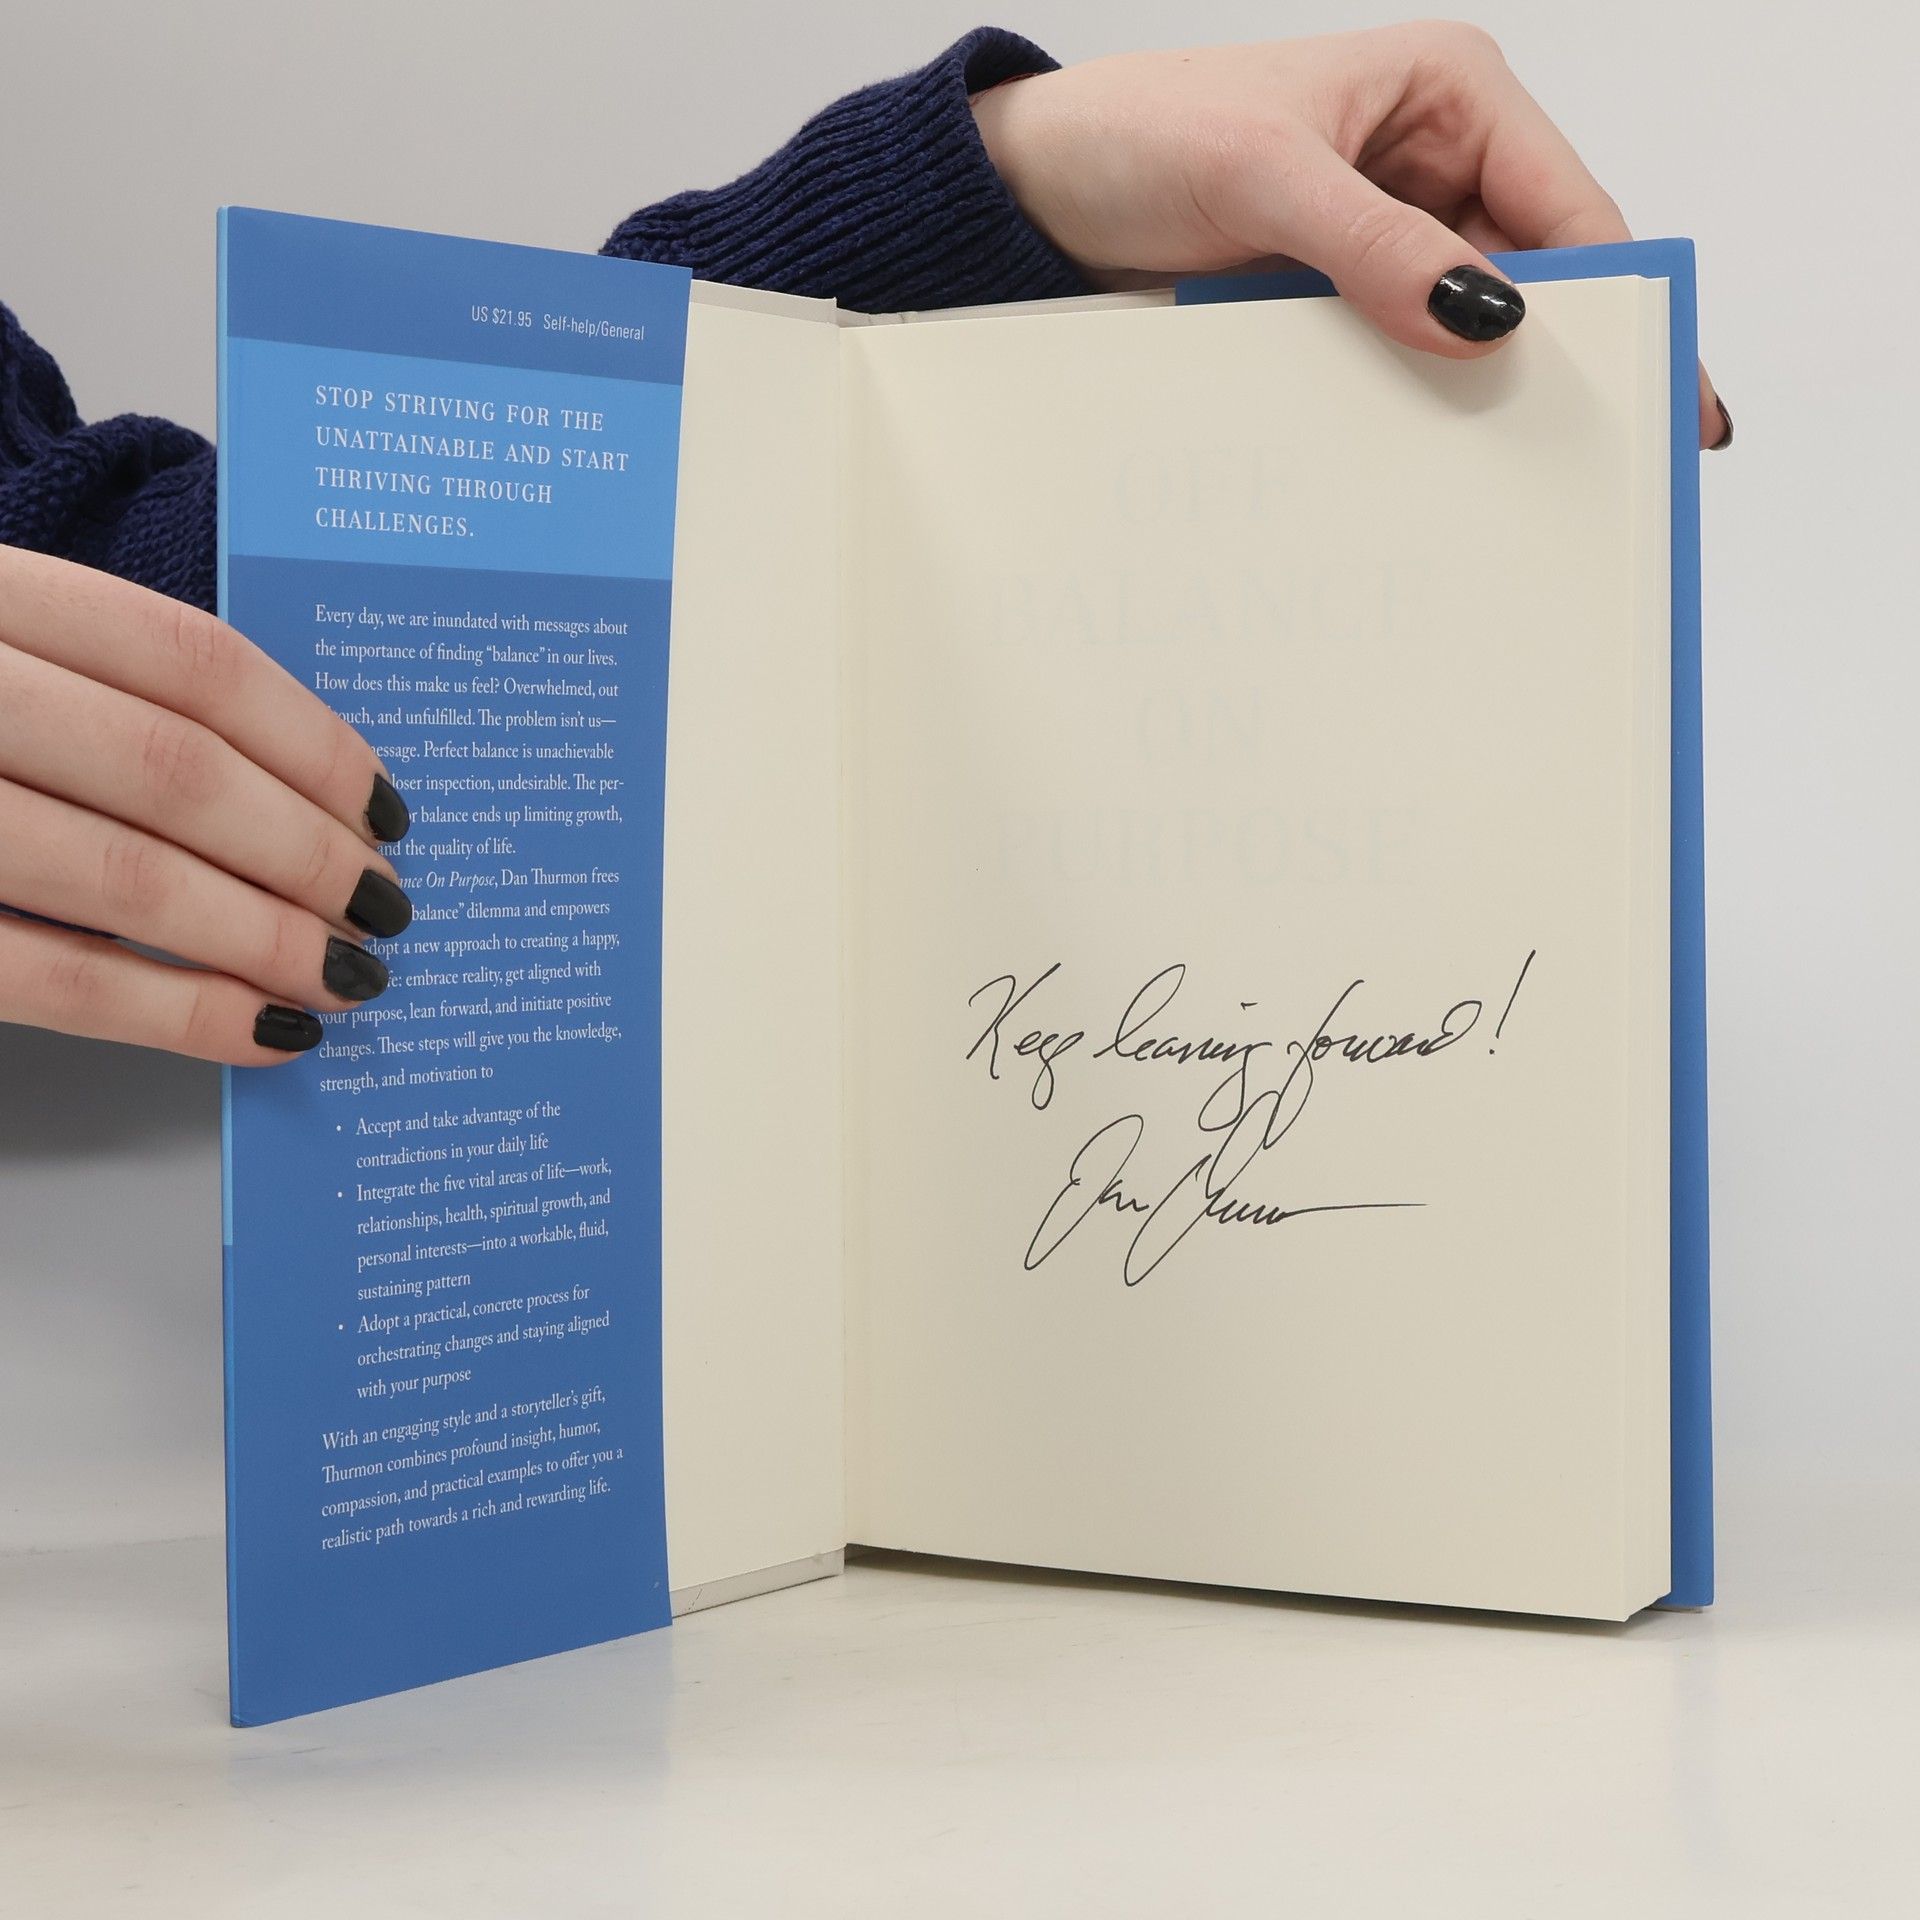 US $21.95 Self-help/General
STOP STRIVING FOR THE
UNATTAINABLE AND START
THRIVING THROUGH
CHALLENGES.
Every day, we are inundated with messages about
the importance of finding “balance” in our lives.
How does this make us feel? Overwhelmed, out
ouch, and unfulfilled. The problem isn’t us—
essage. Perfect balance is unachievable
loser inspection, undesirable. The per-
r balance ends up limiting growth,
and the quality of life.
ance On Purpose, Dan Thurmon frees
balance” dilemma and empowers
adopt a new approach to creating a happy,
fe: embrace reality, get aligned with
your purpose, lean forward, and initiate positive
changes. These steps will give you the knowledge,
strength, and motivation to
• Accept and take advantage of the
contradictions in your daily life
• Integrate the five vital areas of life—work,
relationships, health, spiritual growth, and
personal interests—into a workable, fluid,
sustaining pattern
• Adopt a practical, concrete process for
orchestrating changes and staying aligned
with your purpose
With an engaging style and a storyteller’s gift,
Thurmon combines profound insight, humor,
compassion, and practical examples to offer you a
realistic path towards a rich and rewarding life.
OFF
BALANCE
ON
PURPOSE
Keep leaning forward!
Dan Thurmon